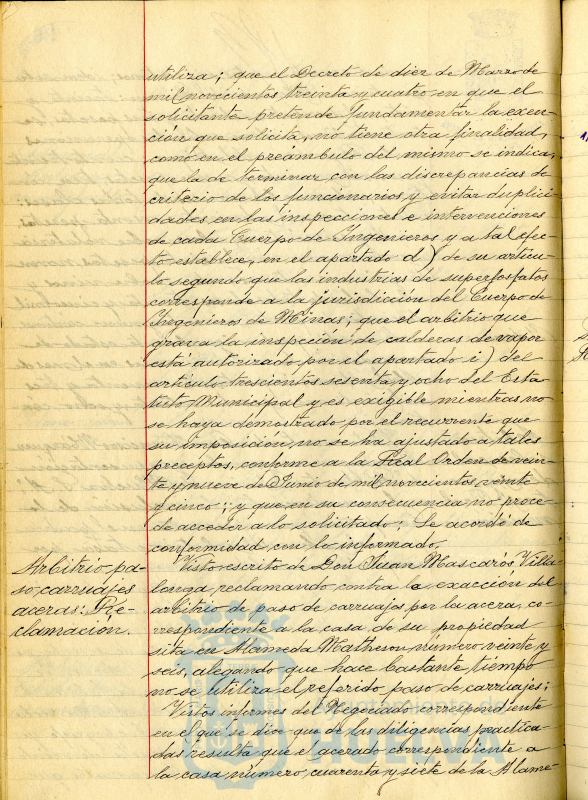 utiliza; que el Decreto de diez de Marzo de
mil novecientos treinta y cuatro en que el
solicitante pretende fundamentar la exen-
ción que solicita, no tiene otra finalidad,
como en el preambulo del mismo se indica,
que la de terminar con las discrepancias de
criterio de los funcionarios y evitar duplici-
dades en las inspecciones e intervenciones
de cada Cuerpo de Ingenieros y a tal efec-
to establece, en el apartado d) de su artícu-
lo segundo que las industrias de superfosfatos
corresponde a la jurisdicion del Cuerpo de
Ingenieros de Minas; que el arbitrio que
grava la inspeción de calderas de vapor
está autorizado por el apartado i) del
artículo trescientos sesenta y ocho del Esta-
tuto Municipal y es exigible mientras no
se haya demostrado por el recurrente que
su imposición no se ha ajustado a tales
preceptos, conforme a la Real Orden de vein-
te y nueve de Junio de mil novecientos veinte
y cinco; y que en su consecuencia no proce-
de acceder a lo solicitado; Se acordó de
conformidad con lo informado.
Arbitrio pa-
so carruajes
aceras: Re-
clamación.
Visto escrito de Don Juan Mascarós Villa-
longa reclamando contra la exacción del
arbitrio de paso de carruajes por la acera, co-
rrespondiente a la casa de su propiedad
sita en Alameda Matheson número veinte y
seis, alegando que hace bastante tiempo
no se utiliza el referido paso de carruajes;
Vistos informes del Negociado correspondiente
en el que se dice que de las diligencias practica-
das resulta que el acerado correspondiente a
la casa número cuarenta y siete de la Alame-